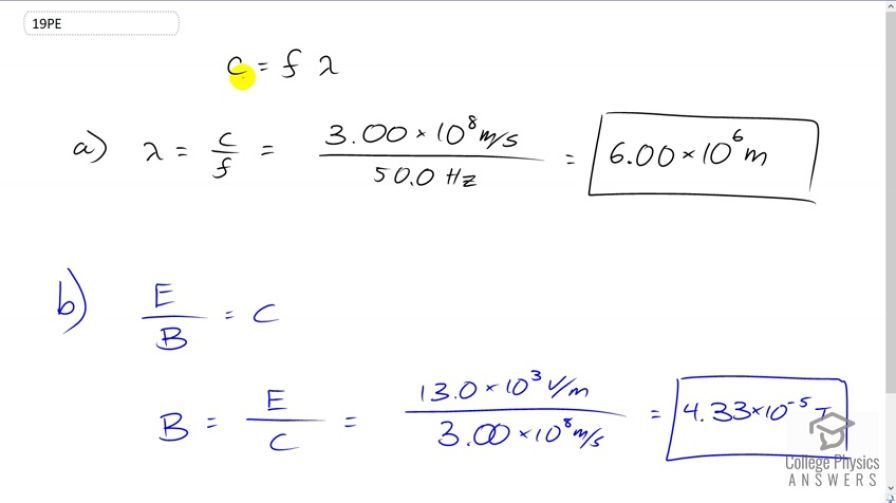 19PE
c = f λ
a) λ = c/f = 3.00 × 10⁸ m/s / 50.0 Hz = 6.00 × 10⁶ m
b) E/B = C
B = E/C = 13.0 × 10³ V/m / 3.00 × 10⁸ m/s = 4.33 × 10⁻⁵ T
College Physics
ANSWERS